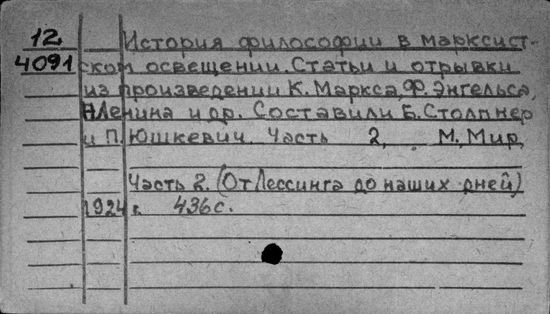 12
4091
История философии в марксист-
ском освещении. Статьи и отрывки
из произведении К. Маркса, Ф. Энгельса,
Н Ленина и др. Составили Б. Столпнер
и П. Юшкевич. Часть 2, М., Мир,
Часть 2. (От Лессинга до наших дней)
1924 г. 436 с.